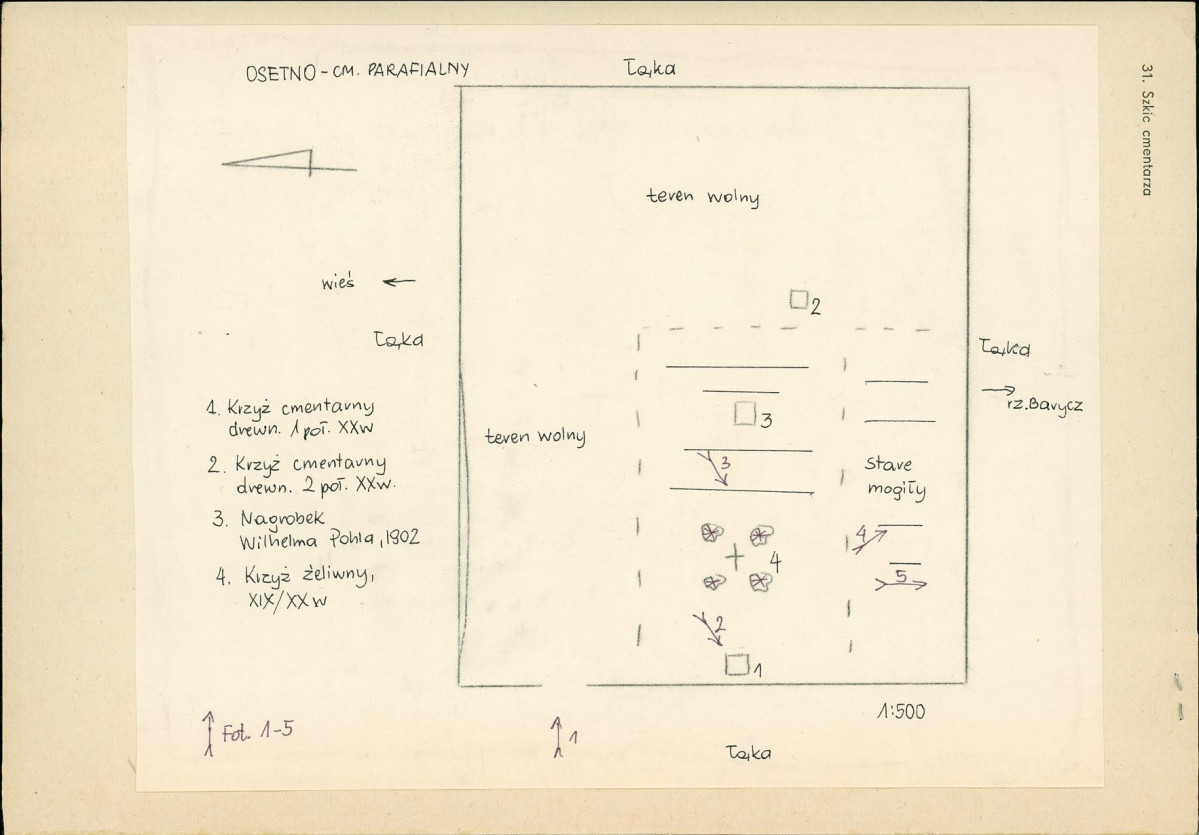 OSETNO - CM. PARAFIALNY
Łąka
31. Szkic cmentarza
teren wolny
wieś
2
Łąka
Łąka
rz. Barycz
3
teren wolny
1. Krzyż cmentarny
drewn. 1 poł. XXw
2. Krzyż cmentarny
drewn. 2 poł. XXw.
3. Nagrobek
Wilhelma Pohla, 1902
4. Krzyż żeliwny,
XIX/XXw
3
Stare
mogiły
4
4
5
2
1
1:500
Fot. 1-5
1
Łąka